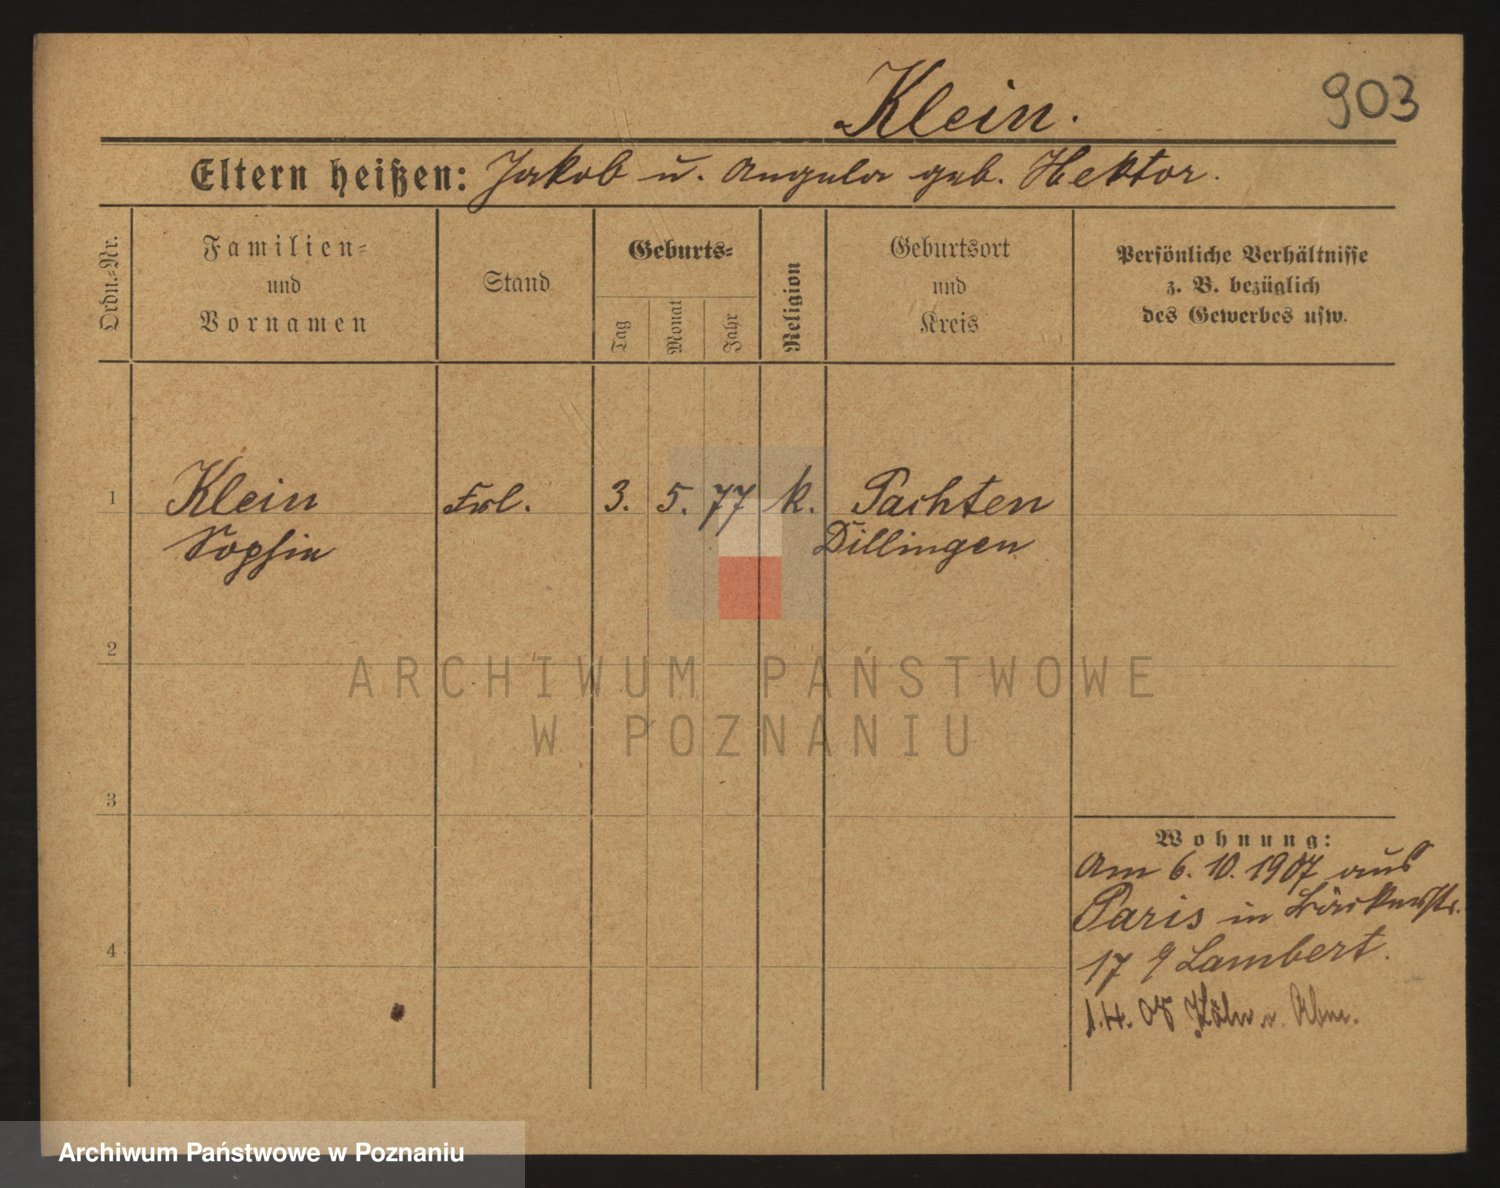 Klein.
903
Eltern heißen: Jakob u. Angela geb. Hektor.
Ordn.-Nr.
Familien-
und
Vornamen
Stand
Geburts-
Tag
Monat
Jahr
Religion
Geburtsort
und
Kreis
Persönliche Verhältnisse
z. B. bezüglich
des Gewerbes usw.
1 Klein Frl. 3. 5. 77 k. Pachten
Sophie Dillingen
2
ARCHIWUM PAŃSTWOWE
W POZNANIU
3
Wohnung:
Am 6. 10. 1907 aus
Paris in
4
17 Lambert.
1.4. 08 Köln
Archiwum Państwowe w Poznaniu